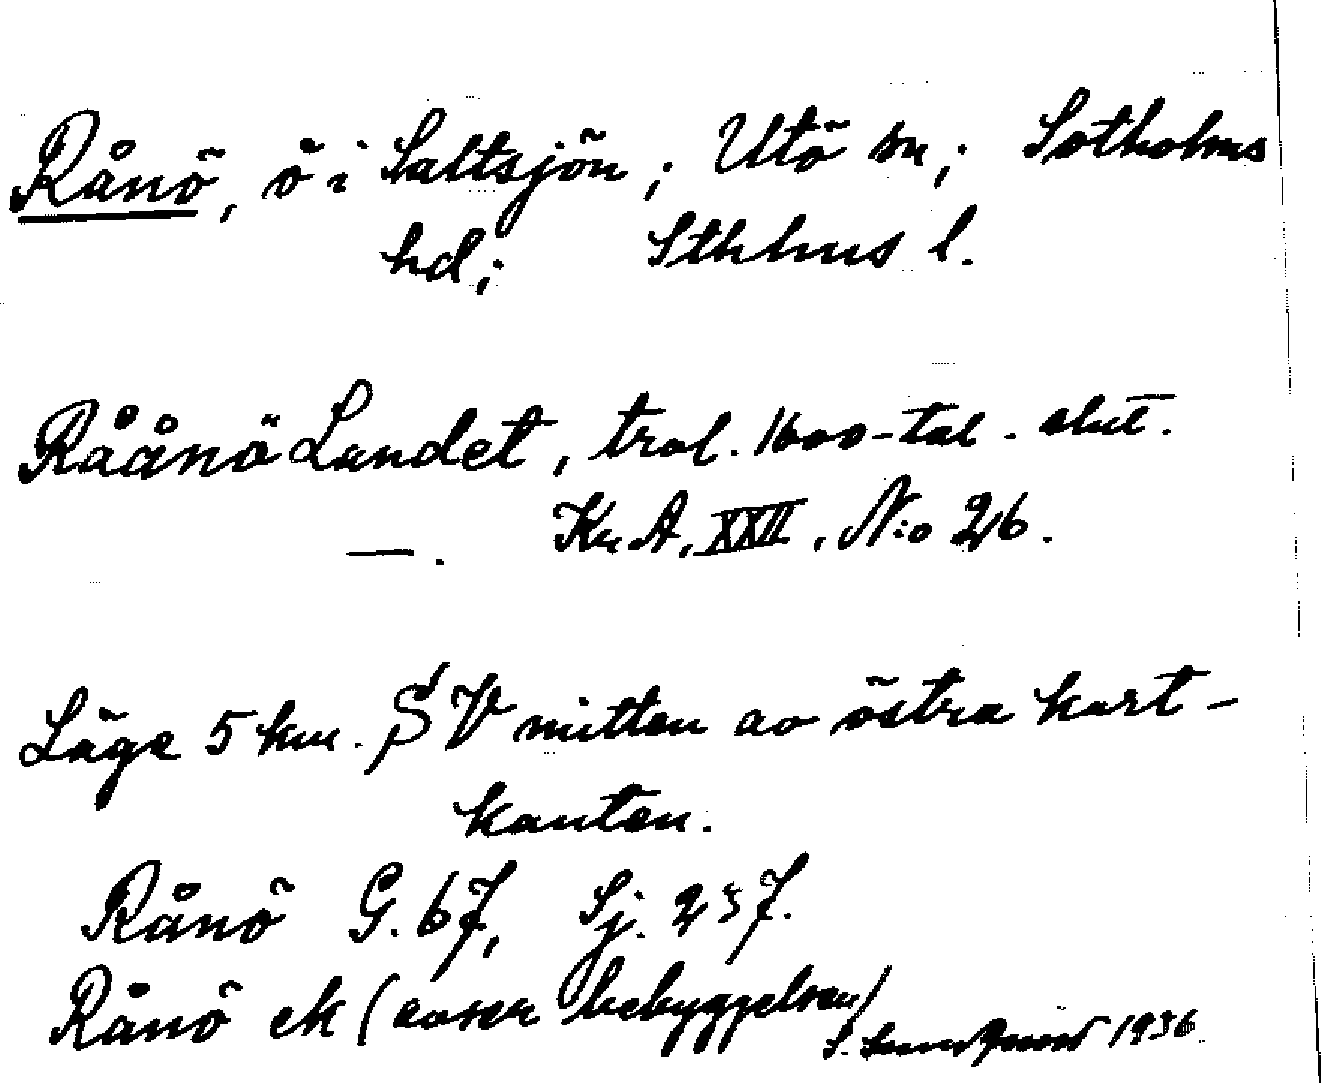 Rånö, ö i Saltsjön; Utö sn; Sotholms
hd; Sthlms l.
Råånö Landet, trol. 1600-tal. slut.
—. Kr A, XXII, N:o 26.
Läge 5 km. SV mitten av östra kart-
kanten.
Rånö G. 67, Sj. 237.
Rånö ek (avser bebyggelsen)
S. 1936